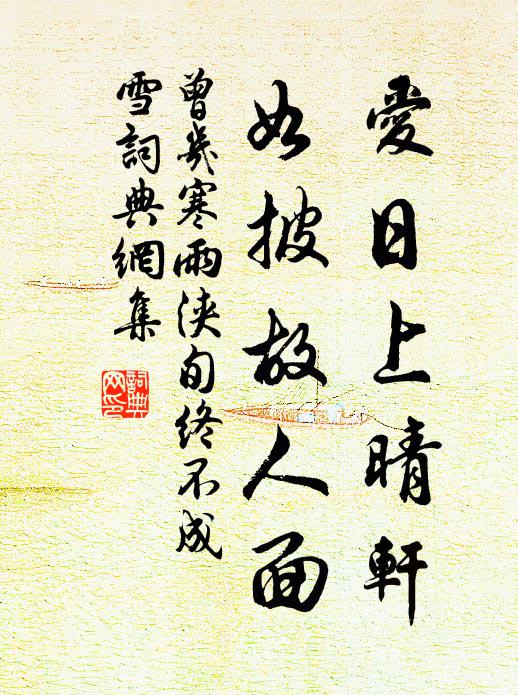 愛日上晴軒
如披故人面
曾幾寒雨浹旬終不成
雪詞典網集
詞典
网印